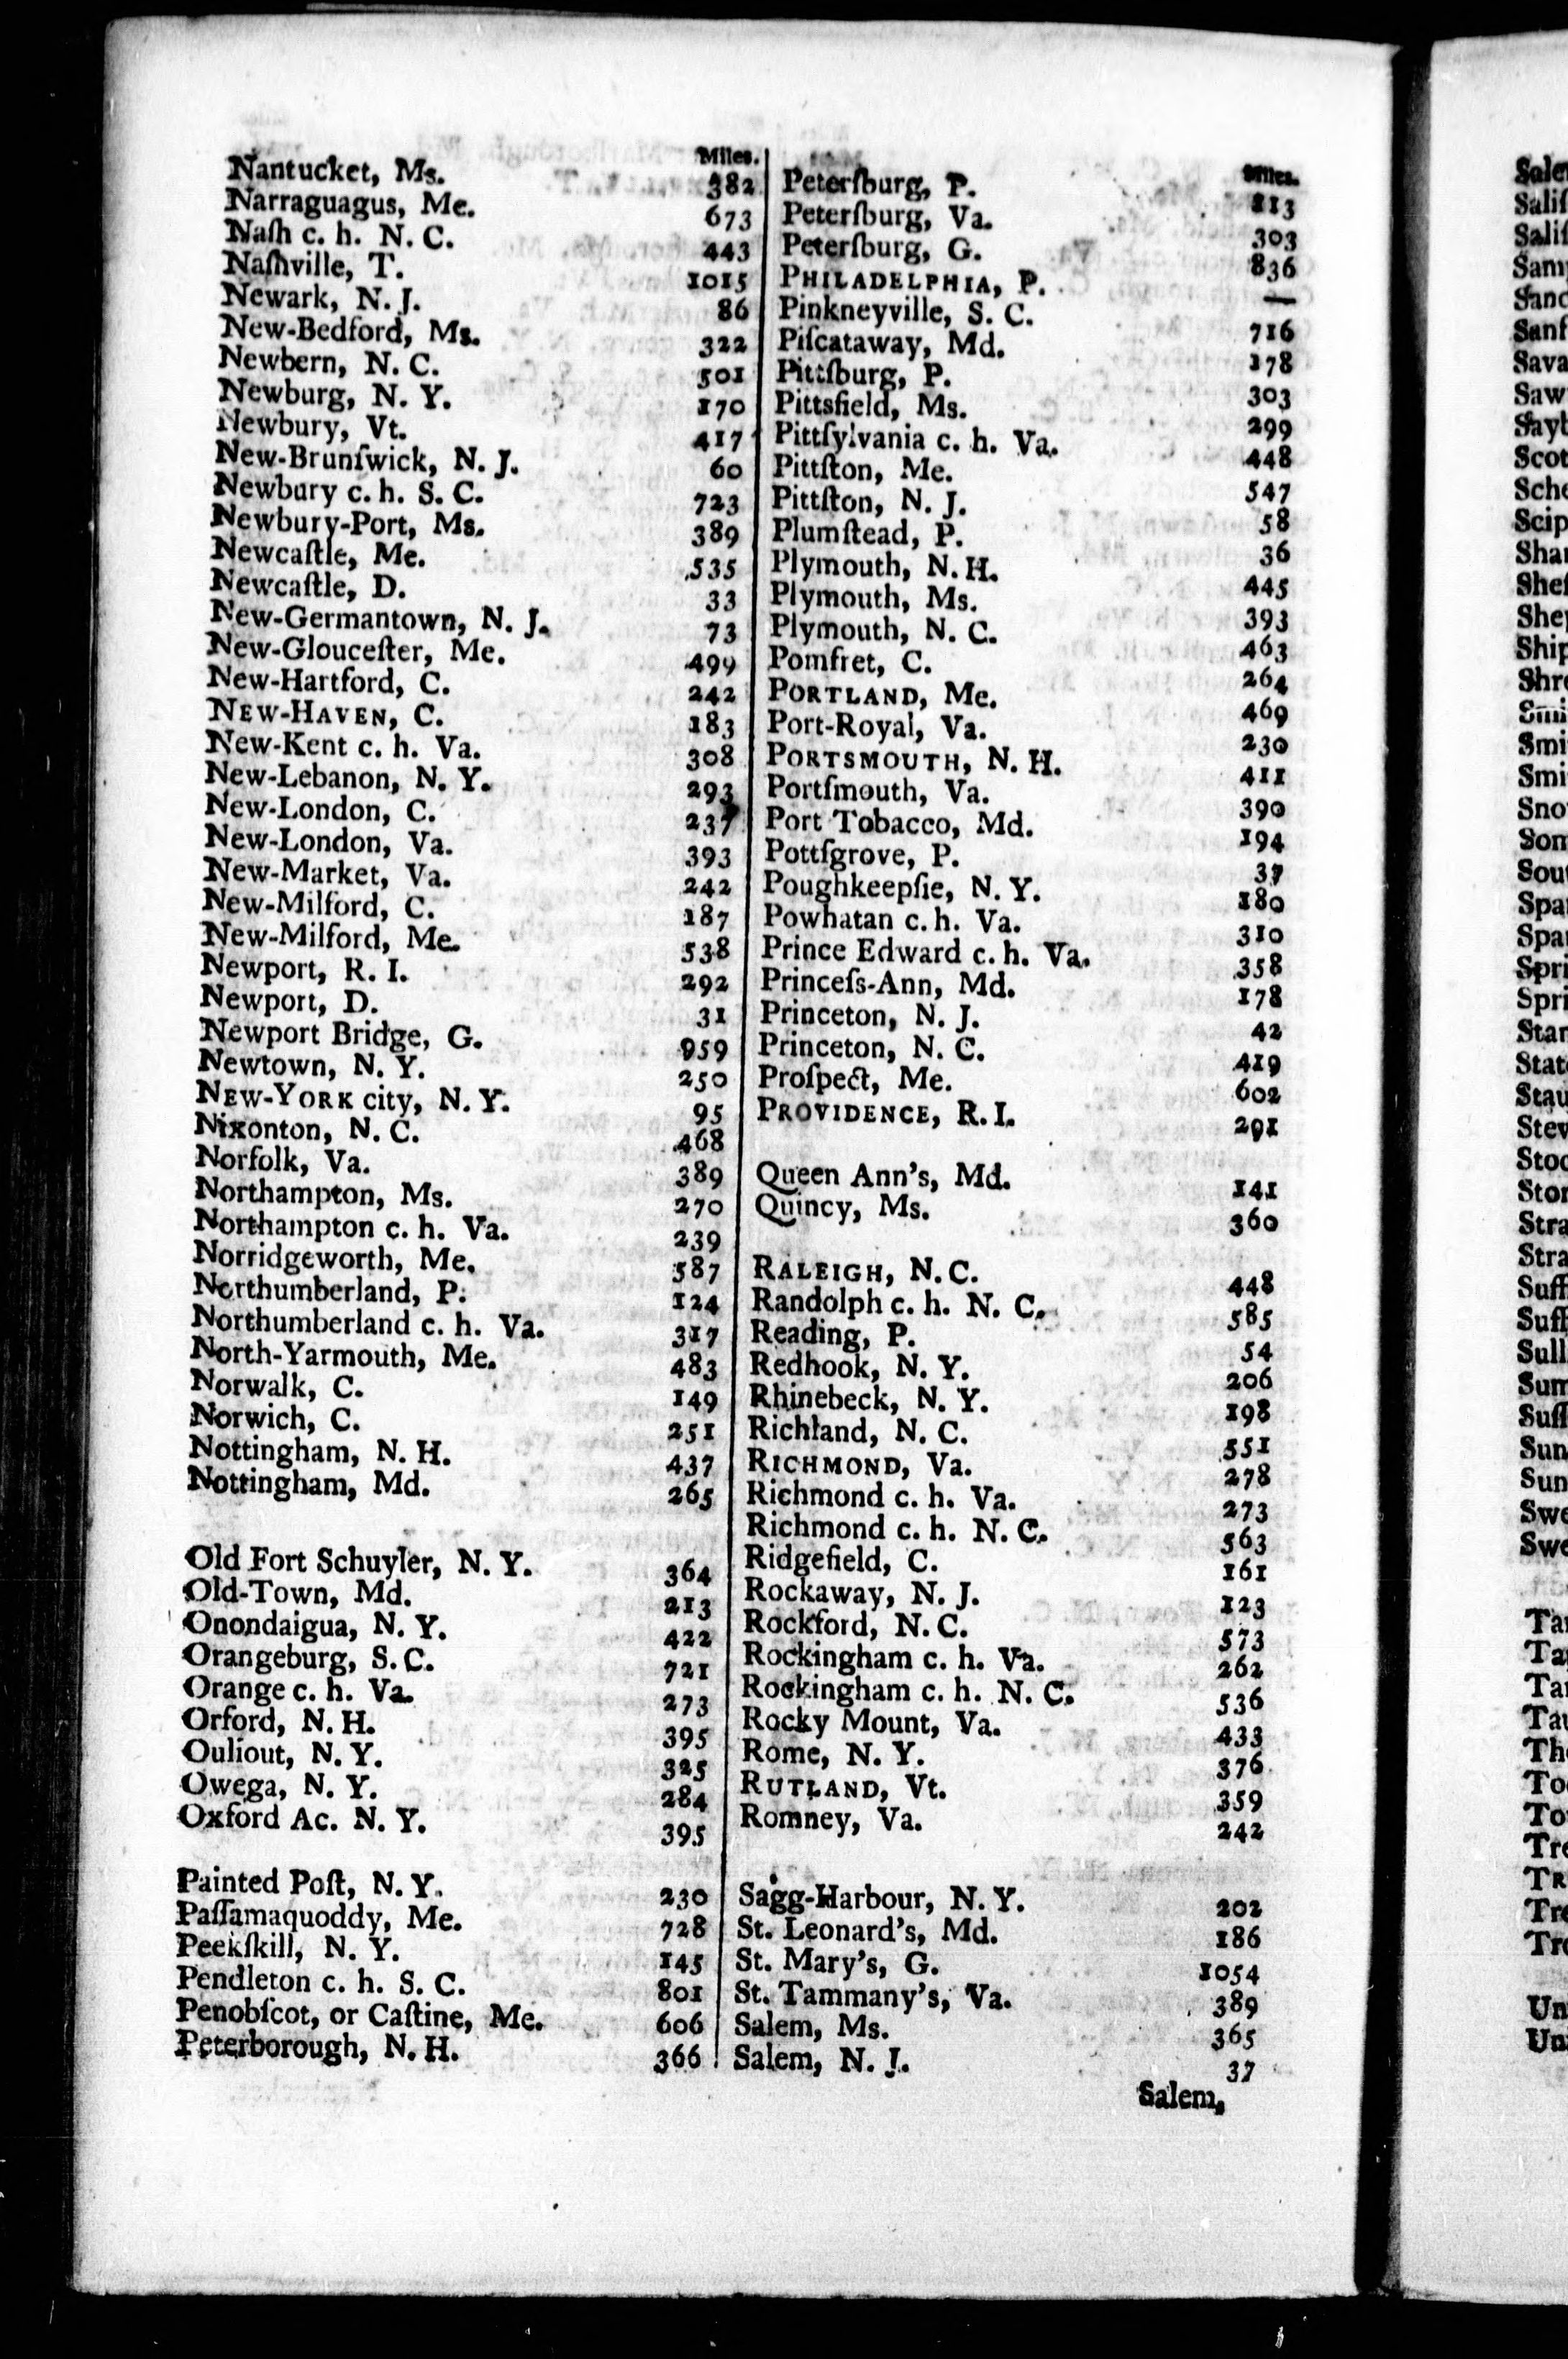 Miles.
Nantucket, Ms. 382
Narraguagus, Me. 673
Naſh c. h. N. C. 443
Naſhville, T. 1015
Newark, N. J. 86
New-Bedford, Ms. 322
Newbern, N. C. 501
Newburg, N. Y. 170
Newbury, Vt. 417
New-Brunſwick, N. J. 60
Newbury c. h. S. C. 723
Newbury-Port, Ms. 389
Newcaſtle, Me. 535
Newcaſtle, D. 33
New-Germantown, N. J. 73
New-Glouceſter, Me. 499
New-Hartford, C. 242
NEW-HAVEN, C. 183
New-Kent c. h. Va. 308
New-Lebanon, N. Y. 293
New-London, C. 237
New-London, Va. 393
New-Market, Va. 242
New-Milford, C. 187
New-Milford, Me. 538
Newport, R. I. 292
Newport, D. 31
Newport Bridge, G. 959
Newtown, N. Y. 250
NEW-YORK city, N. Y. 95
Nixonton, N. C. 468
Norfolk, Va. 389
Northampton, Ms. 270
Northampton c. h. Va. 239
Norridgeworth, Me. 587
Northumberland, P. 124
Northumberland c. h. Va. 317
North-Yarmouth, Me. 483
Norwalk, C. 149
Norwich, C. 251
Nottingham, N. H. 437
Nottingham, Md. 265
Old Fort Schuyler, N. Y. 364
Old-Town, Md. 213
Onondaigua, N. Y. 422
Orangeburg, S. C. 721
Orange c. h. Va. 273
Orford, N. H. 395
Ouliout, N. Y. 325
Owega, N. Y. 284
Oxford Ac. N. Y. 395
Painted Poſt, N. Y. 230
Paſſamaquoddy, Me. 728
Peekſkill, N. Y. 145
Pendleton c. h. S. C. 801
Penobſcot, or Caſtine, Me. 606
Peterborough, N. H. 366
Miles.
Peterſburg, P. 813
Peterſburg, Va. 303
Peterſburg, G. 836
PHILADELPHIA, P. —
Pinkneyville, S. C. 716
Piſcataway, Md. 178
Pittſburg, P. 303
Pittsfield, Ms. 299
Pittſylvania c. h. Va. 448
Pittſton, Me. 547
Pittſton, N. J. 58
Plumſtead, P. 36
Plymouth, N. H. 445
Plymouth, Ms. 393
Plymouth, N. C. 463
Pomfret, C. 264
PORTLAND, Me. 469
Port-Royal, Va. 230
PORTSMOUTH, N. H. 411
Portſmouth, Va. 390
Port Tobacco, Md. 194
Pottſgrove, P. 37
Poughkeepſie, N. Y. 180
Powhatan c. h. Va. 310
Prince Edward c. h. Va. 358
Princeſs-Ann, Md. 178
Princeton, N. J. 42
Princeton, N. C. 419
Proſpect, Me. 602
PROVIDENCE, R. I. 291
Queen Ann's, Md. 141
Quincy, Ms. 360
RALEIGH, N. C. 448
Randolph c. h. N. C. 585
Reading, P. 54
Redhook, N. Y. 206
Rhinebeck, N. Y. 198
Richland, N. C. 551
RICHMOND, Va. 278
Richmond c. h. Va. 273
Richmond c. h. N. C. 563
Ridgefield, C. 161
Rockaway, N. J. 123
Rockford, N. C. 573
Rockingham c. h. Va. 262
Rockingham c. h. N. C. 536
Rocky Mount, Va. 433
Rome, N. Y. 376
RUTLAND, Vt. 359
Romney, Va. 242
Sagg-Harbour, N. Y. 202
St. Leonard's, Md. 186
St. Mary's, G. 1054
St. Tammany's, Va. 389
Salem, Ms. 365
Salem, N. J. 37
Salem,